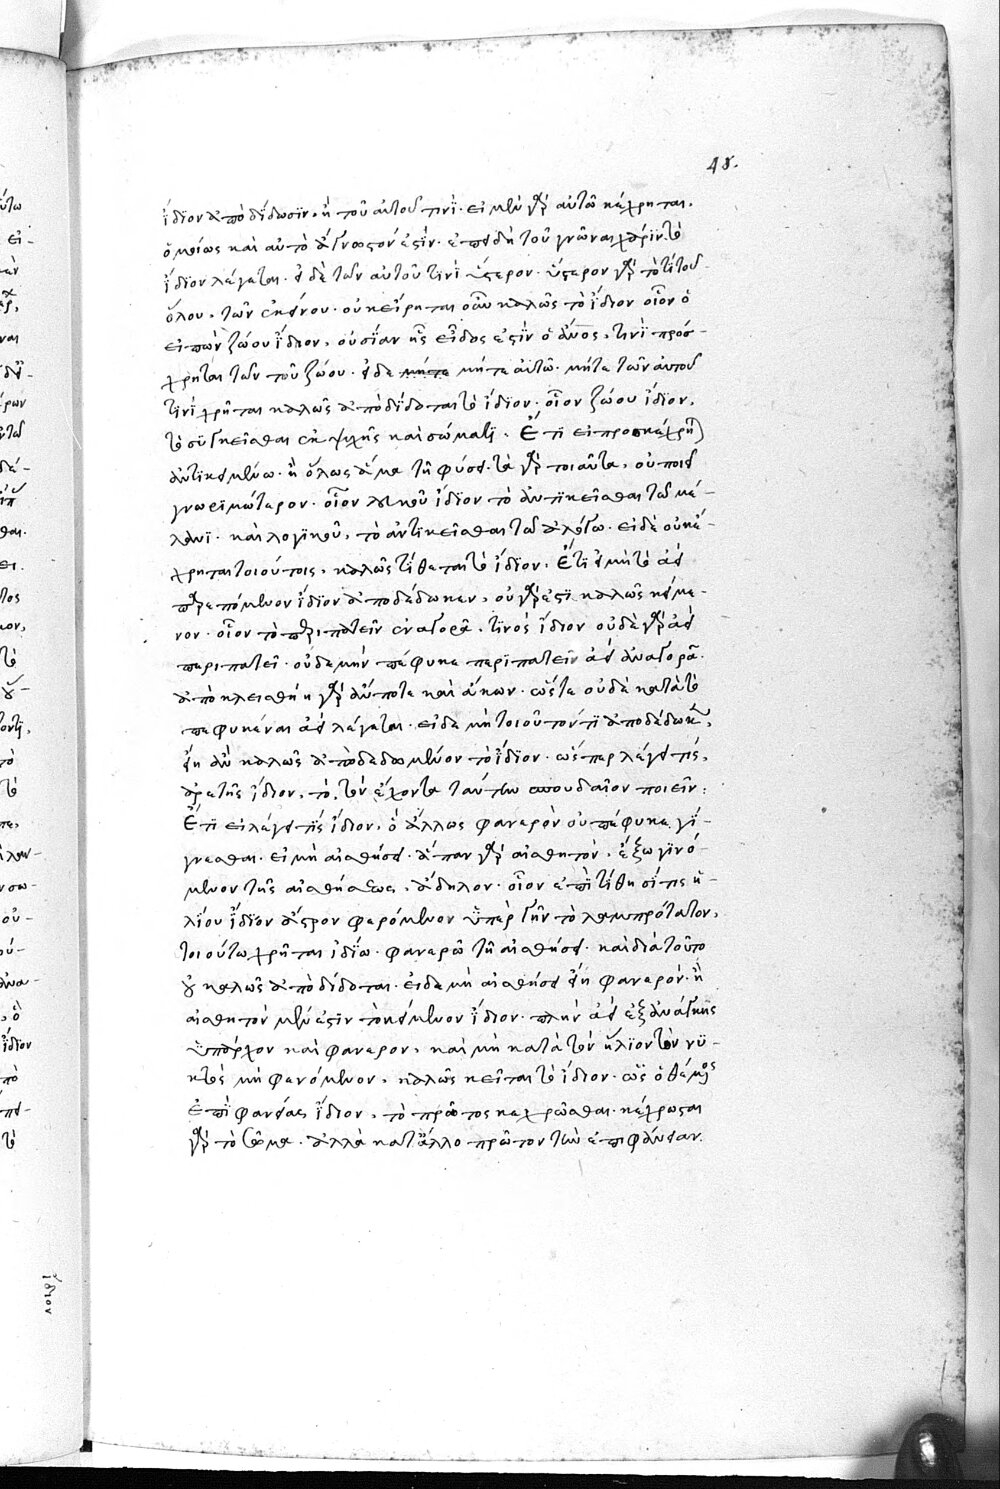 48.
ἴδϊον ἀποδίδωσϊν. ἢ τοῦ αὐτοῦ τινΐ. εἰ μὲν γὰρ αὐτῶ κέχρηται.
ὁμοίως καὶ αὐτὸ ἄγνωστόν ἐστϊν. ἐπειδὴ τοῦ γνῶναι χάρϊν τὸ
ἴδϊον λέγεται. εἰ δὲ τῶν αὐτοῦ τϊνὶ ὕστερον. ὕστερον γὰρ τὸ τὶ τοῦ
ὅλου. τῶν ἐκείνου. οὐκ εἴρηται οὖν καλῶς τὸ ἴδιον οἷον ὁ
εἰπὼν ζώου ἴδιον, οὐσΐαν ἧς εἶδος ἐστϊν ὁ ἄνος. τινὶ προσ-
χρῆται τῶν τοῦ ζώου. εἰ δε μήτε αὐτῶ. μήτε τῶν αὐτοῦ
τϊνὶ χρῆται καλῶς ἀποδίδοται τὸ ἴδϊον. οἷον ζώου ἴδϊον,
τὸ συγκεῖσθαι ἐκ ψυχῆς καὶ σώματϊ. Ἔτϊ εἰ προσκέχρηται
ἀντϊκειμένω. ἢ ὅλως ἅμα τῆ φύσει. τὰ γὰρ τοιαῦτα, οὐ ποιεῖ
γνωρϊμώτερον. οἷον λευκοῦ ἴδϊον τὸ ἀντϊκεῖσθαι τῶ μέ-
λανϊ. καὶ λογϊκοῦ, τὸ ἀντϊκεῖσθαι τῶ ἀλόγω. εἰ δὲ οὐ κέ-
χρηται τοιούτοις, καλῶς τίθεται τὸ ἴδϊον. Ἔτϊ εἰ μὴ τὸ ἀεὶ
παρεπόμενον ἴδϊον ἀποδέδωκεν, οὐ γάρ ἐστϊ καλῶς κείμε-
νον. οἷον τὸ περιπατεῖν ἐν ἀγορᾶ. τϊνὸς ἴδϊον οὐδὲ γὰρ ἀεὶ
περιπατεῖ. οὐδε μὴν πέφυκε περϊπατεῖν ἀεὶ ἐν ἀγορᾶ.
ἀποκλεισθείη γὰρ ἄν ποτε καὶ ἄκων. ὥστε οὐδὲ κατὰ τὸ
πεφυκέναι ἀεὶ λέγεται. εἰ δε μὴ τοιοῦτόν τϊ ἀποδέδωκεν,
εἴη ἂν καλῶς ἀποδεδομένον τὸ ἴδϊον. ὥσπερ λέγει τὶς,
ἀρετῆς ἴδιον, τὸ, τὸν ἔχοντα ταύτην σπουδαῖον ποιεῖν:
Ἔτϊ εἰ λέγει τΐς ἴδιον, ὃ ἄλλως φανερὸν οὐ πέφυκε γΐ-
γνεσθαι. εἰ μὴ αἰσθήσει. ἅπαν γὰρ αἰσθητὸν, ἔξω γϊνό-
μενον τῆς αἰσθήσεως, ἄδηλον. οἷον ἐπιτίθησΐ τις ἡ-
λΐου ἴδϊον ἄστρον φερόμενον ὑπὲρ γῆν τὸ λαμπρότατον,
τοιούτω χρῆται ἰδΐω. φανερῶ τῆ αἰσθήσει. καὶ διὰ τοῦτο
οὐ καλῶς ἀποδίδοται. εἰ δε μὴ αἰσθήσει εἴη φανερόν. ἢ
αἰσθητὸν μέν ἐστϊν τὸ κείμενον ἴδϊον. πλὴν ἀεὶ ἐξ ἀνάγκης
ὑπάρχον καὶ φανερον, καὶ μὴ κατὰ τὸν ἥλϊον τὸν νϋ-
κτὸς μὴ φαινόμενον, καλῶς κεῖται τὸ ἴδϊον. ὡς ὁ θέμενος
ἐπϊφανείας ἴδϊον, τὸ πρῶτος κεχρῶσθαι. κέχρωσται
γὰρ τὸ σῶμα. ἀλλὰ κατ᾽ ἄλλο πρῶτον τὴν ἐπιφάνειαν.